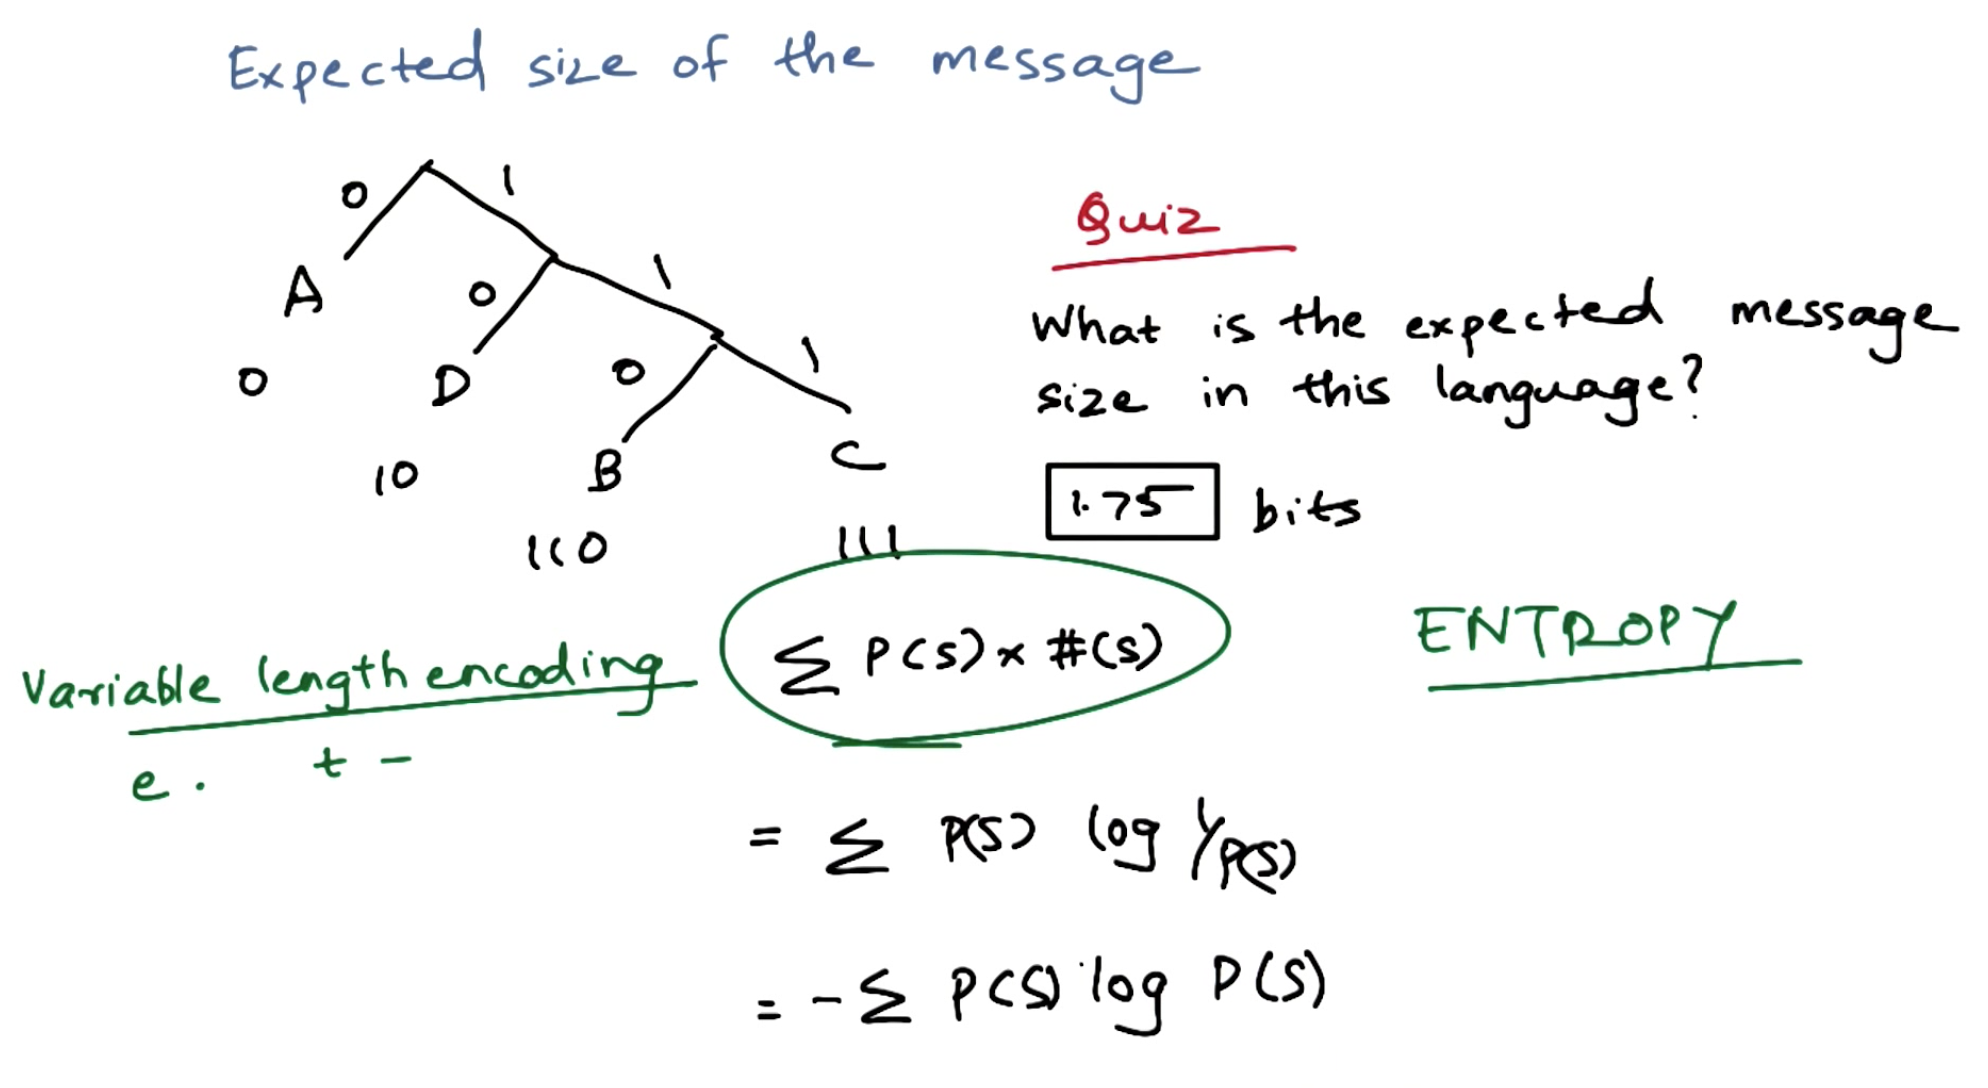 Expected size of the message
0 1
A 0 1
0 D 0 1
10 B C
110 111
Quiz
What is the expected message
size in this language?
1.75 bits
Variable length encoding
e . t –
∑ P(s) × #(s)
ENTROPY
= ∑ P(s) log 1/P(s)
= - ∑ P(s) log P(s)